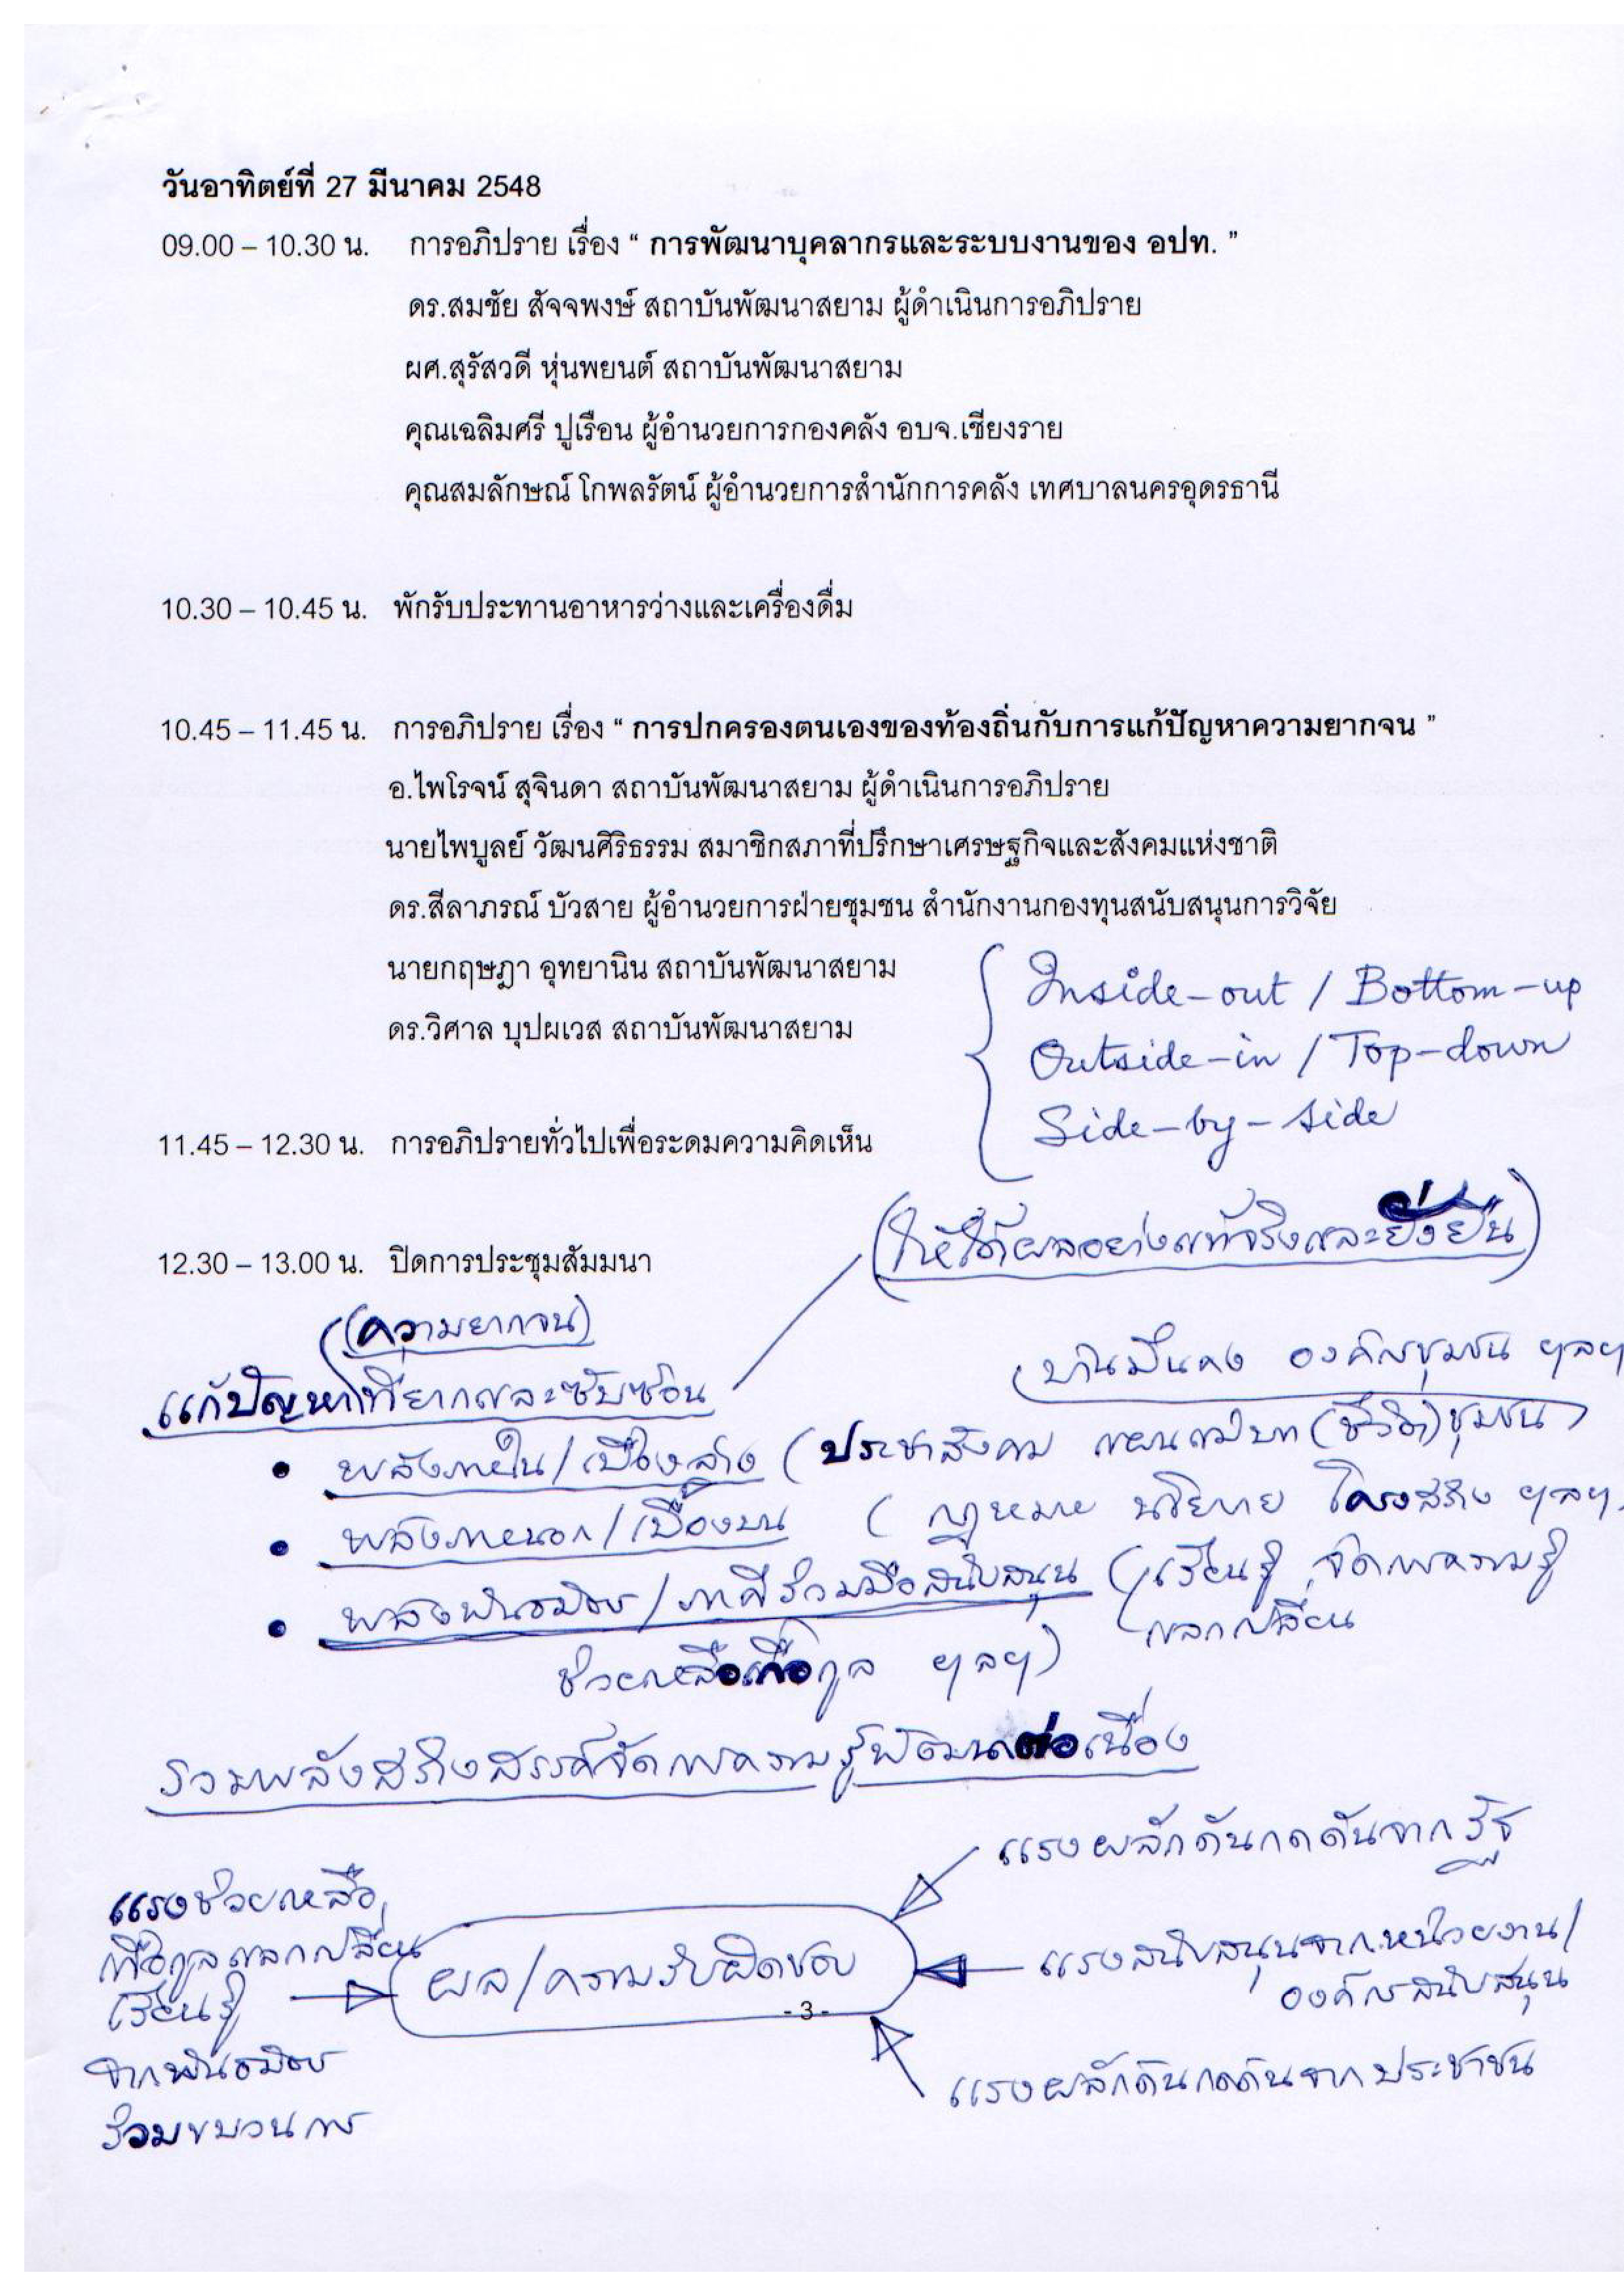 วันอาทิตย์ที่ 27 มีนาคม 2548
09.00 – 10.30 น. การอภิปราย เรื่อง “ การพัฒนาบุคลากรและระบบงานของ อปท. ”
ดร.สมชัย สัจจพงษ์ สถาบันพัฒนาสยาม ผู้ดำเนินการอภิปราย
ผศ.สุรัสวดี หุ่นพยนต์ สถาบันพัฒนาสยาม
คุณเฉลิมศรี ปูเรือน ผู้อำนวยการกองคลัง อบจ.เชียงราย
คุณสมลักษณ์ โกพลรัตน์ ผู้อำนวยการสำนักการคลัง เทศบาลนครอุดรธานี
10.30 – 10.45 น. พักรับประทานอาหารว่างและเครื่องดื่ม
10.45 – 11.45 น. การอภิปราย เรื่อง “ การปกครองตนเองของท้องถิ่นกับการแก้ปัญหาความยากจน ”
อ.ไพโรจน์ สุจินดา สถาบันพัฒนาสยาม ผู้ดำเนินการอภิปราย
นายไพบูลย์ วัฒนศิริธรรม สมาชิกสภาที่ปรึกษาเศรษฐกิจและสังคมแห่งชาติ
ดร.สีลาภรณ์ บัวสาย ผู้อำนวยการฝ่ายชุมชน สำนักงานกองทุนสนับสนุนการวิจัย
นายกฤษฎา อุทยานิน สถาบันพัฒนาสยาม
ดร.วิศาล บุปผเวส สถาบันพัฒนาสยาม
Inside-out / Bottom-up
Outside-in / Top-down
Side-by-side
11.45 – 12.30 น. การอภิปรายทั่วไปเพื่อระดมความคิดเห็น
12.30 – 13.00 น. ปิดการประชุมสัมมนา
(ให้ได้ผลอย่างแท้จริงและยั่งยืน)
(ความยากจน)
แก้ปัญหาที่ยากและซับซ้อน
บ้านมั่นคง องค์กรชุมชน ฯลฯ
• พลังภายใน/เบื้องล่าง (ประชาสังคม แผนแม่บท (ชีวิต) ชุมชน
• พลังภายนอก/เบื้องบน (กฎหมาย นโยบาย โครงสร้าง ฯลฯ
• พลังพันธมิตร/ภาคีร่วมมือสนับสนุน (เรียนรู้ จัดการความรู้
แลกเปลี่ยน
ช่วยเหลือเกื้อกูล ฯลฯ)
รวมพลังสร้างสรรค์จัดการความรู้พัฒนาต่อเนื่อง
แรงผลักดันกดดันจากรัฐ
แรงช่วยเหลือ
เกื้อกูลแลกเปลี่ยน
เรียนรู้
จากพันธมิตร
ร่วมขบวนการ
ผล/ความรับผิดชอบ
แรงสนับสนุนจากหน่วยงาน/
องค์กรสนับสนุน
- 3 -
แรงผลักดันกดดันจากประชาชน